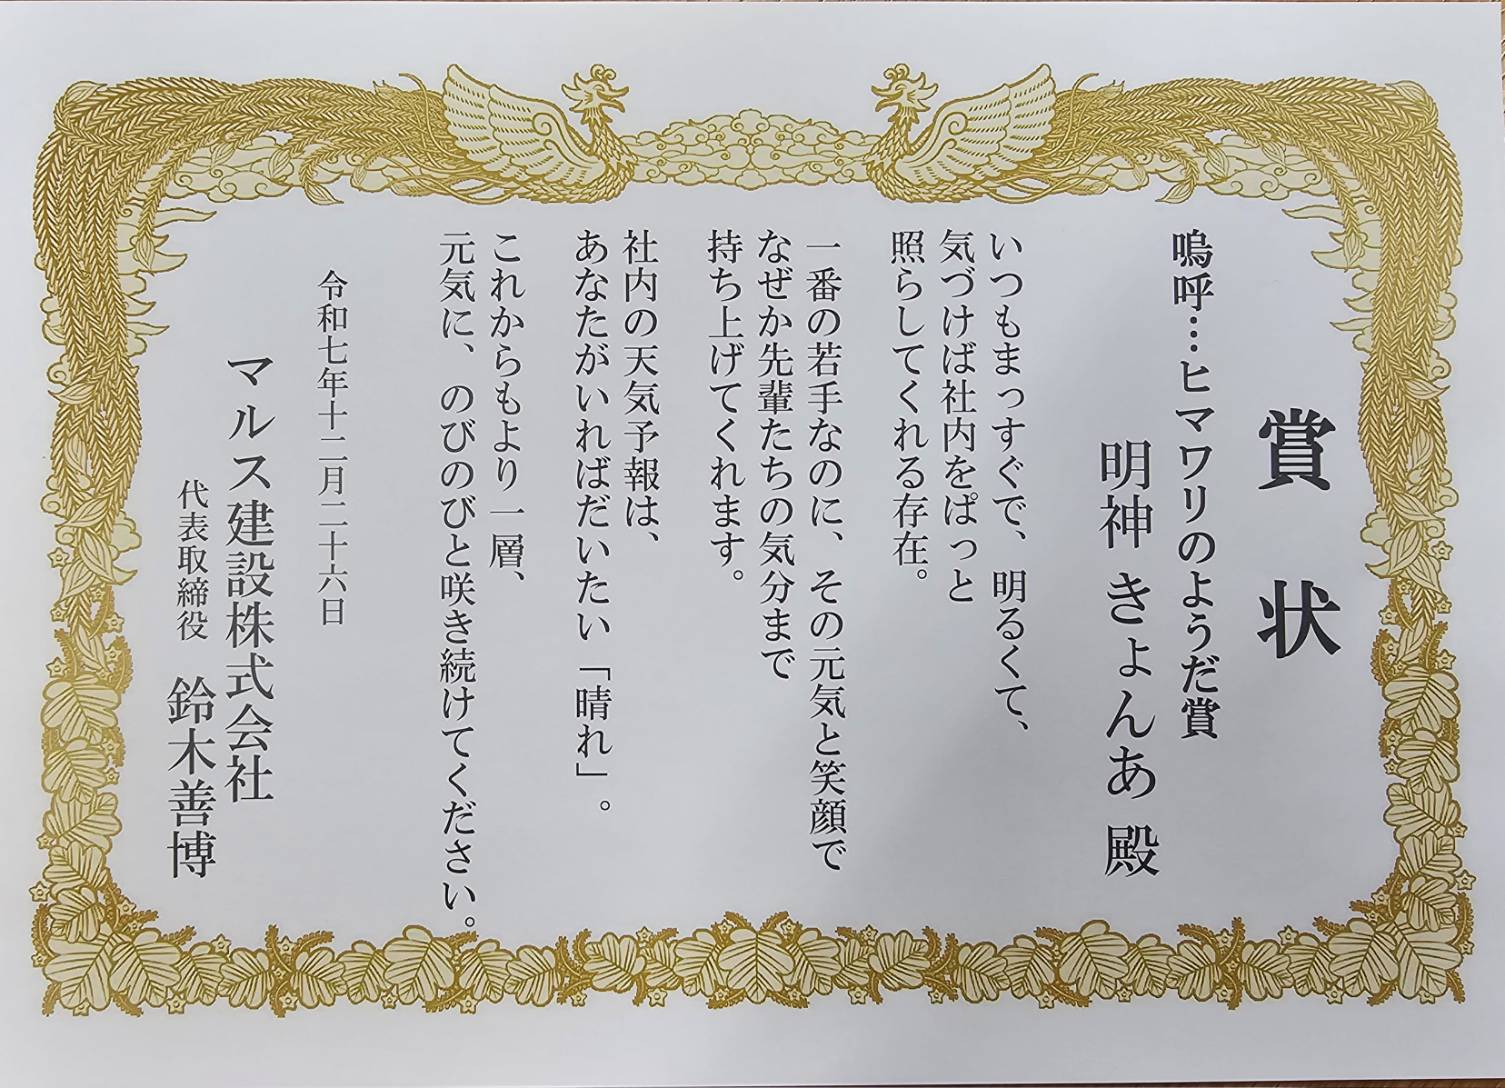 賞状
嗚呼…ヒマワリのようだ賞
明神 きょんあ 殿
いつもまっすぐで、明るくて、
気づけば社内をぱっと
照らしてくれる存在。
一番の若手なのに、その元気と笑顔で
なぜか先輩たちの気分まで
持ち上げてくれます。
社内の天気予報は、
あなたがいればだいたい「晴れ」。
これからもより一層、
元気に、のびのびと咲き続けてください。
令和七年十二月二十六日
マルス建設株式会社
代表取締役 鈴木善博